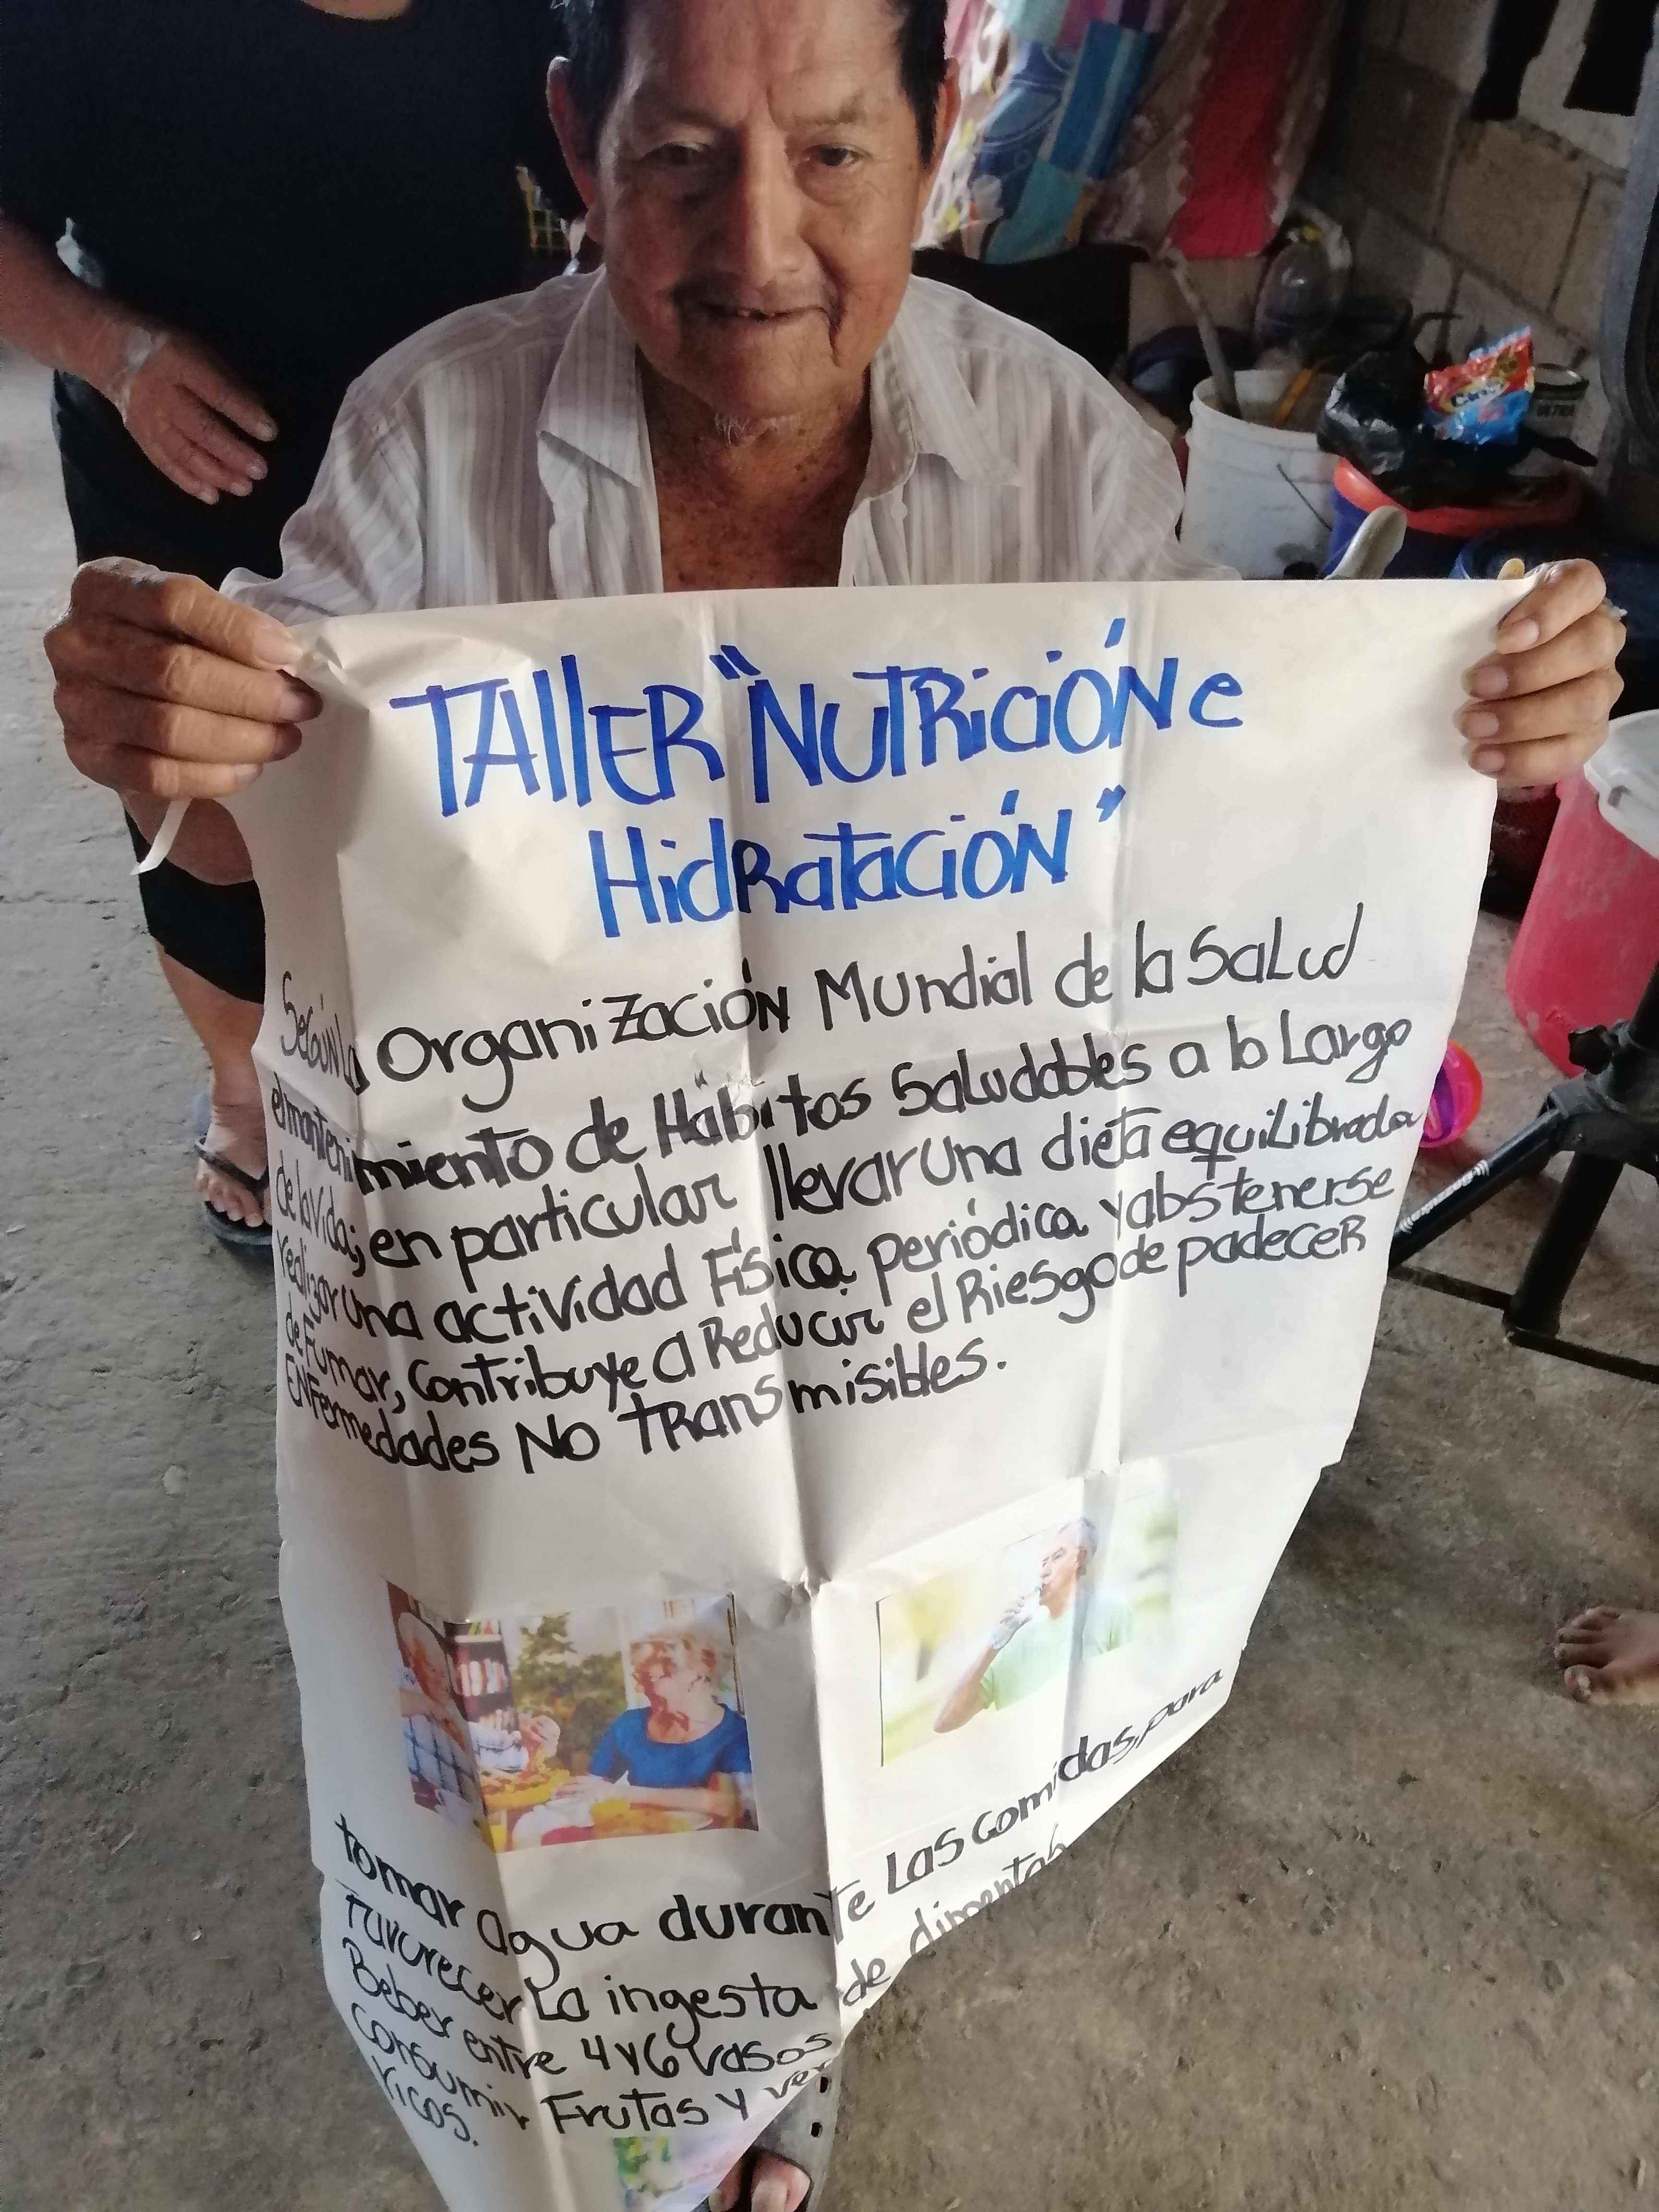 TALLER "NUTRICIÓN e
HidRatación"
Según la Organización Mundial de la Salud
el mantenimiento de Hábitos Saludables a lo Largo
de la Vida; en particular llevar Una dieta equilibrada
realizar Una actividad Física periódica y abstenerse
de Fumar, Contribuye a Reducir el Riesgo de padecer
ENFermedades No TRansmisibles.
tomar agua durante Las comidas, para
Favorecer La ingesta de alimentos
Beber entre 4 y 6 vasos
Consumir Frutas y ver
ricos.